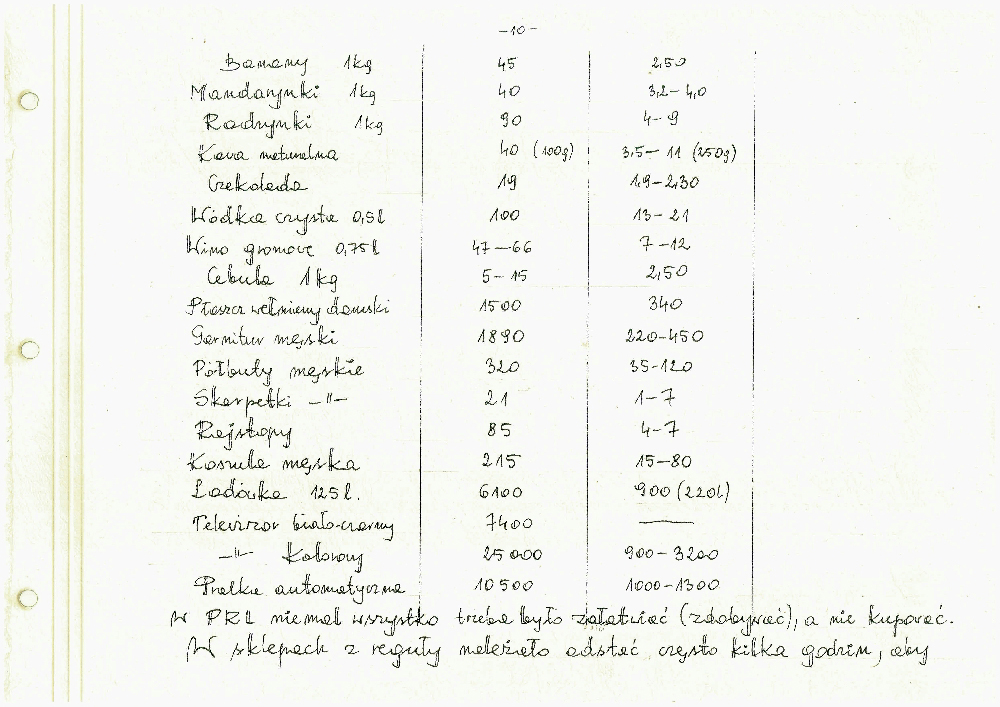 -10-
Banany 1kg 45 2,50
Mandarynki 1kg 40 3,2-4,0
Rodzynki 1kg 90 4-9
Kawa naturalna 40 (100g) 3,5-11 (250g)
Czekolada 19 1,9-2,30
Wódka czysta 0,5l 100 13-21
Wino gronowe 0,75l 47-66 7-12
Cebula 1kg 5-15 2,50
Płaszcz wełniany damski 1500 340
Garnitur męski 1890 220-450
Półbuty męskie 320 35-120
Skarpetki -"- 21 1-7
Rajstopy 85 4-7
Koszula męska 215 15-80
Lodówka 125l. 6100 900 (220l)
Telewizor biało-czarny 7400 —
-"- Kolorowy 25000 900-3200
Pralka automatyczna 10500 1000-1300
W PRL niemal wszystko trzeba było załatwiać (zdobywać), a nie kupować.
W sklepach z reguły należało odstać często kilka godzin, aby